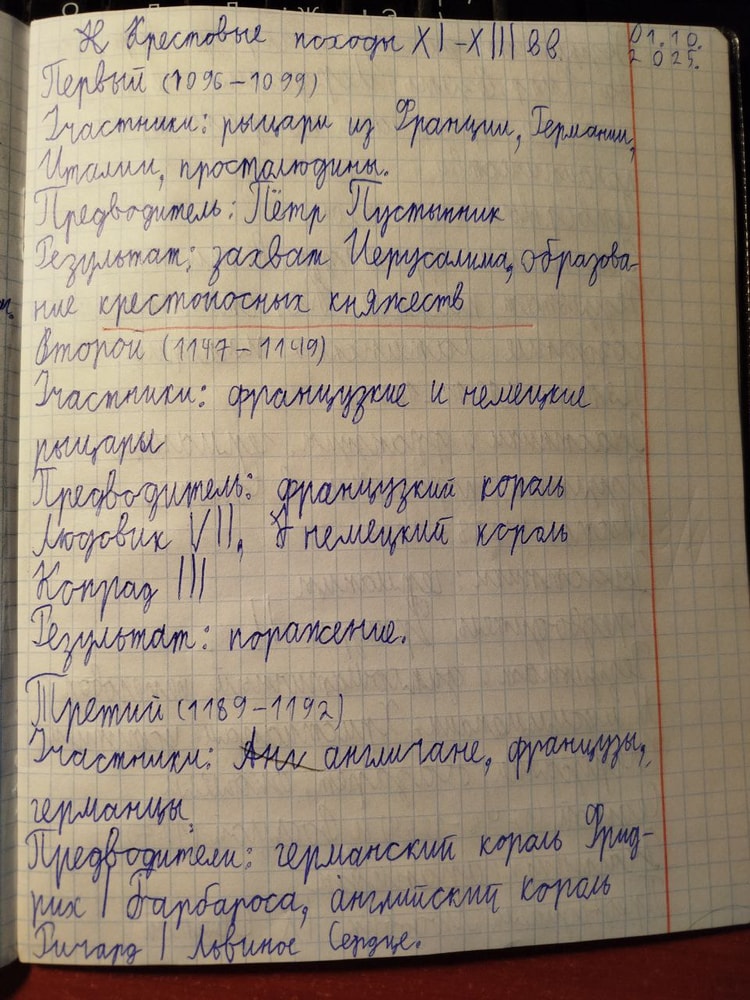 Крестовые походы XI-XIII вв
01.10.
2025.
Первый (1096-1099)
Участники: рыцари из Франции, Германии,
Италии, простолюдины.
Предводитель: Пётр Пустынник
Результат: захват Иерусалима, образова-
ние крестоносных княжеств
Второй (1147-1149)
Участники: французкие и немецкие
рыцары
Предводитель: французкий король
Людовик VII, немецкий король
Конрад III
Результат: поражение.
Третий (1189-1192)
Участники: англичане, французы,
германцы,
Предводители: германский король Фрид-
рих I Барбароса, английский король
Ричард I Львиное Сердце.